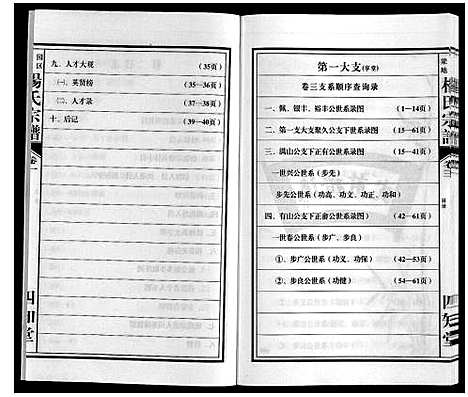 园区
杨氏宗谱
卷一
四知堂
九、人才大观 (35页)
㈠、英贤榜 (35—36页)
㈡、人才录 (37—38页)
十、后记 (39—40页)
第一大支(享堂)
卷三支系顺序查询录
一、佩、银丰、裕丰公世系录图 (1—14页)
二、第一支大支聚久公支下世系录图 (15—61页)
三、满山公支下正有公世系录图 (15—41页)
一世兴公世系 (步先)
步先公世系 (功高、功文、功正、功和)
四、有山公支下正俞公世系录图) (42—61页)
一世春公世系 (步广、步良)
①、步广公世系 (功义、功保) (42—53页)
②、步良公世系 (功健) (54—61页)
杨氏宗谱
四知堂